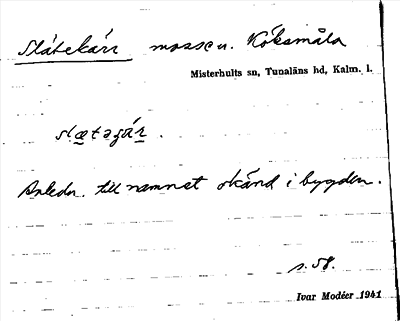 Slätekärr mosse u. Köksmåla
Misterhults sn, Tunaläns hd, Kalm. l.
slætəɕár .
Anledn. till namnet okänd i bygden.
s. 58.
Ivar Modéer 1941